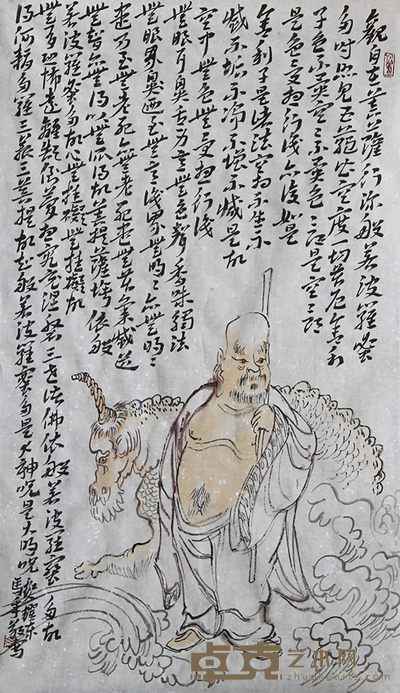 觀自在菩薩行深般若波羅蜜
多時照見五蘊皆空度一切苦厄舍利
子色不異空空不異色色即是空空即
是色受想行識亦復如是
舍利子是諸法空相不生不
滅不垢不淨不增不減是故
空中無色無受想行識
無眼耳鼻舌身意無色聲香味觸法
無眼界乃至無意識界無無明亦無無明
盡乃至無老死亦無老死盡無苦集滅道
無智亦無得以無所得故菩提薩埵依般
若波羅蜜多故心無罣礙無罣礙故
無有恐怖遠離顛倒夢想究竟涅槃三世諸佛依般若波羅蜜多故
得阿耨多羅三藐三菩提故知般若波羅蜜多是大神咒是大明咒
卓克艺术网